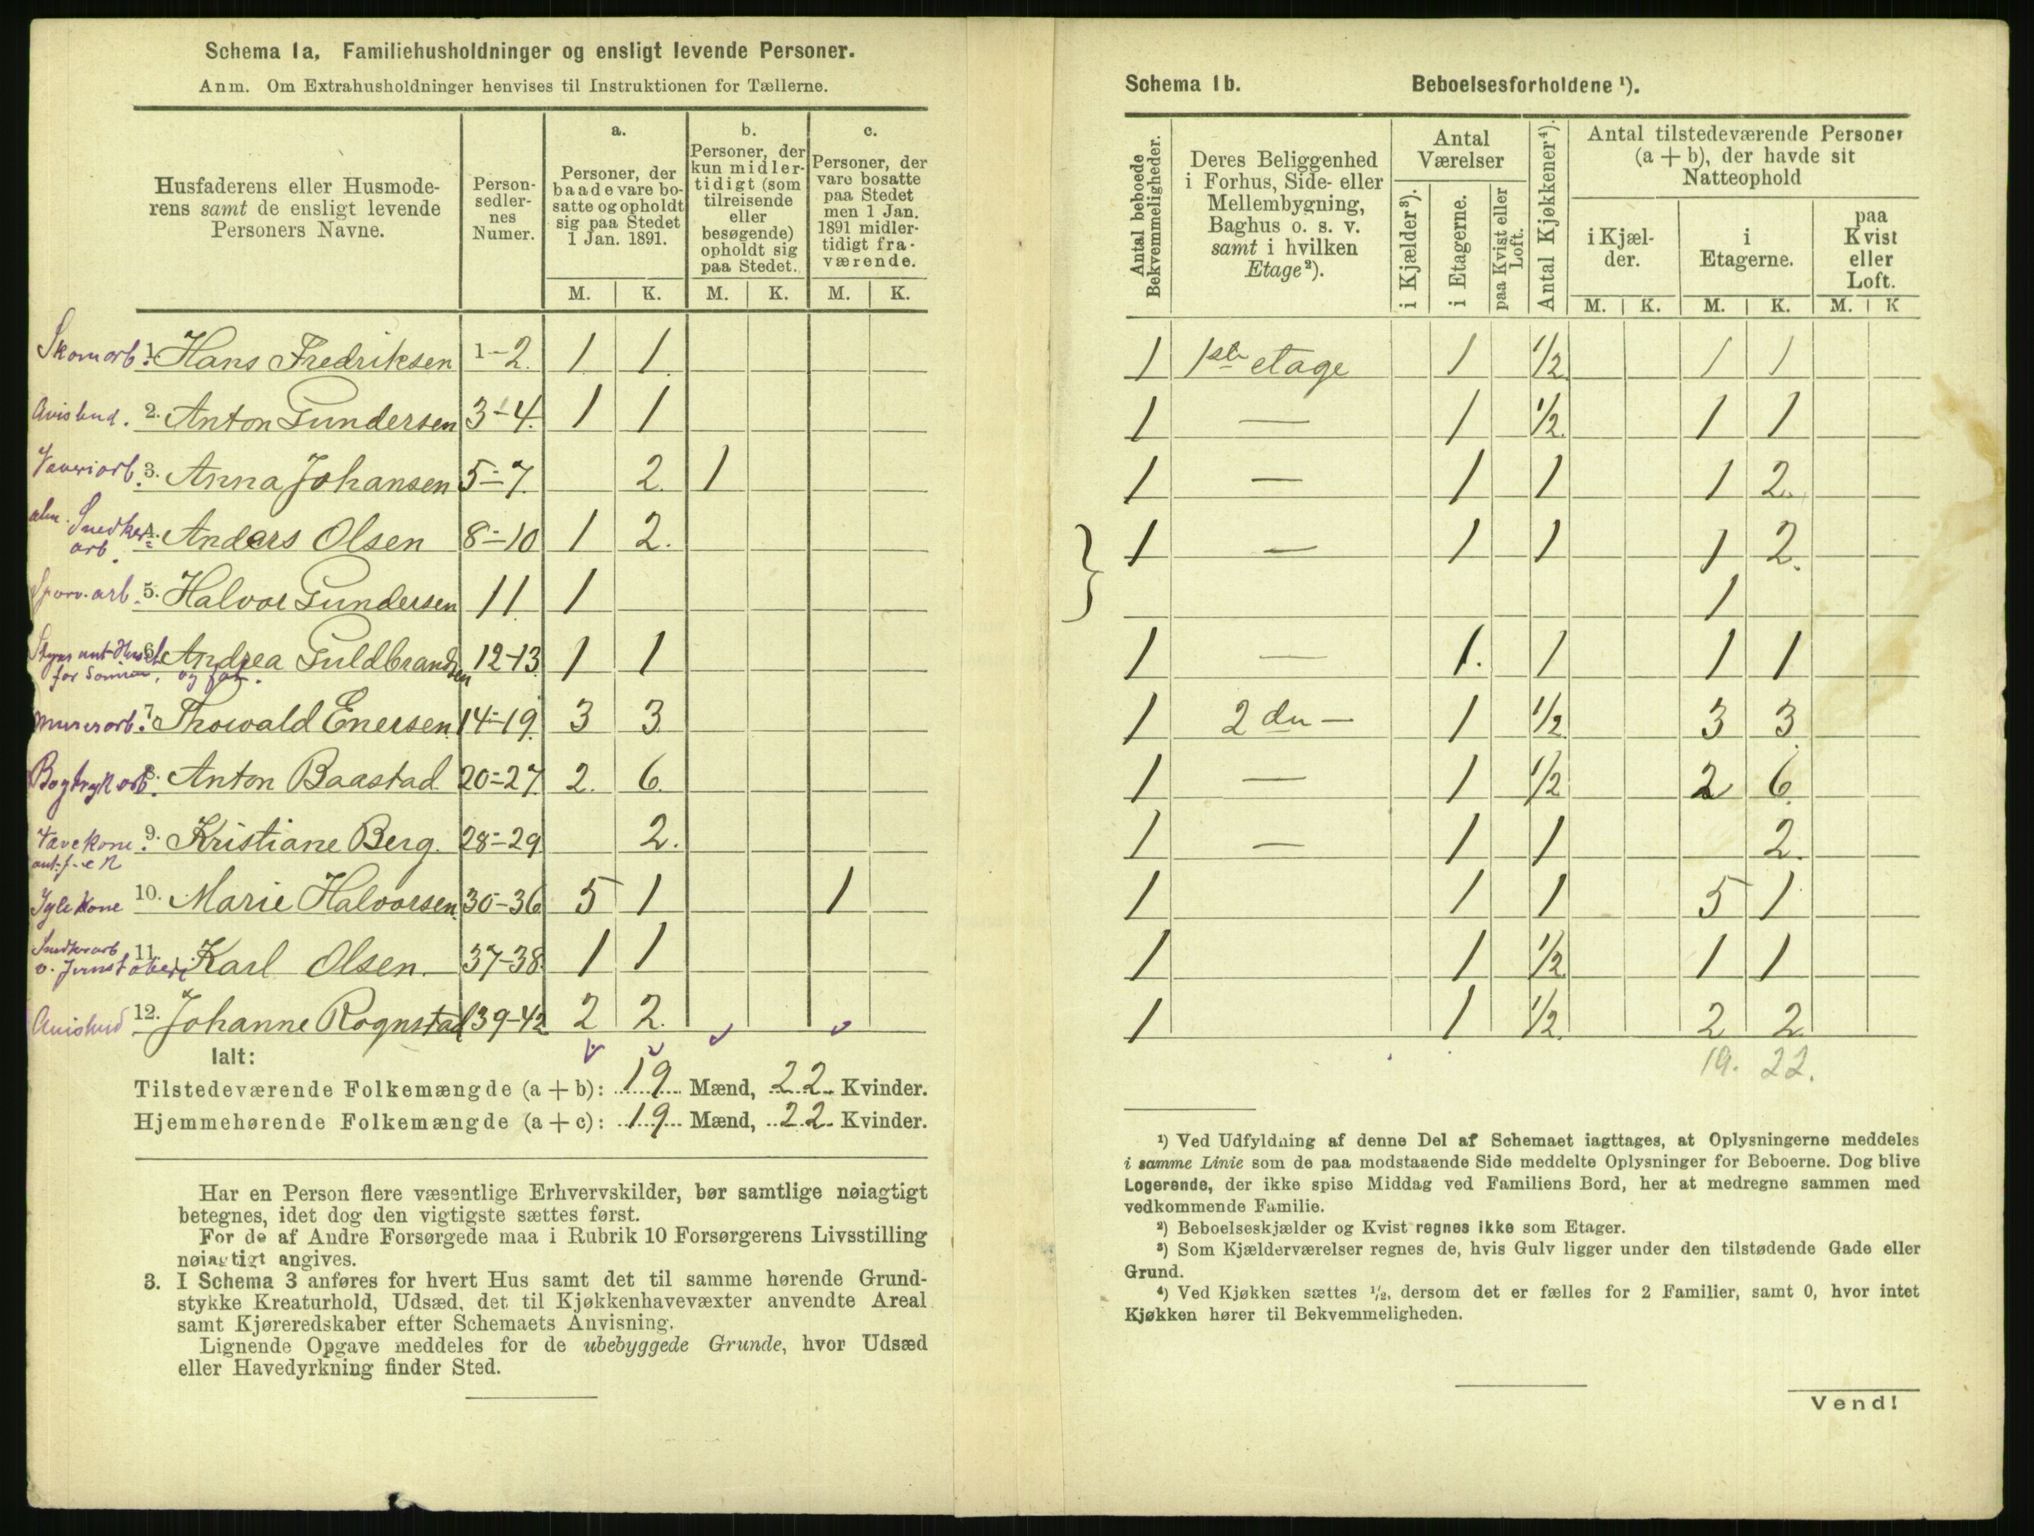 Schema 1a. Familiehusholdninger og ensligt levende Personer.
Anm. Om Extrahusholdninger henvises til Instruktionen for Tællerne.
Husfaderens eller Husmode-
rens samt de ensligt levende
Personers Navne.
Person-
sedler-
nes
Numer.
a.
Personer, der
baade vare bo-
satte og opholdt
sig paa Stedet
1 Jan. 1891.
b.
Personer, der
kun midler-
tidigt (som
tilreisende
eller
besøgende)
opholdt sig
paa Stedet.
c.
Personer, der
vare bosatte
paa Stedet
men 1 Jan.
1891 midler-
tidigt fra-
værende.
M. K. M. K. M. K.
Skomarb. 1. Hans Fredriksen 1-2. 1 1
Avisbud. 2. Anton Gundersen 3-4. 1 1
Væveriarb. 3. Anna Johansen 5-7. 2. 1
alm. Snedker
arb. 4. Anders Olsen 8-10 1 2.
Sporv. arb. 5. Halvor Gundersen 11 1
6. Andrea Guldbrandsen 12-13. 1 1
for Sønnen, og fat.
Murerarb. 7. Thorvald Enersen 14-19. 3 3
Bogtrykarb. 8. Anton Baastad 20-27. 2. 6.
Vævekone. 9. Kristiane Berg. 28-29 2.
10. Marie Halvorsen 30-36 5 1 1
Snedkerarb
11. Karl Olsen. 37-38. 1 1
Avisbud 12. Johanne Rognstad 39-42 2 2
Ialt:
Tilstedeværende Folkemængde (a + b): 19 Mænd, 22 Kvinder.
Hjemmehørende Folkemængde (a + c): 19 Mænd, 22 Kvinder.
Har en Person flere væsentlige Erhvervskilder, bør samtlige nøiagtigt
betegnes, idet dog den vigtigste sættes først.
For de af Andre Forsørgede maa i Rubrik 10 Forsørgerens Livsstilling
nøiagtigt angives.
3. I Schema 3 anføres for hvert Hus samt det til samme hørende Grund-
stykke Kreaturhold, Udsæd, det til Kjøkkenhavevæxter anvendte Areal
samt Kjøreredskaber efter Schemaets Anvisning.
Lignende Opgave meddeles for de ubebyggede Grunde, hvor Udsæd
eller Havedyrkning finder Sted.
Schema 1b. Beboelsesforholdene ¹).
Antal beboede
Bekvemmeligheder.
Deres Beliggenhed
i Forhus, Side- eller
Mellembygning,
Baghus o. s. v.
samt i hvilken
Etage²).
Antal
Værelser
i Kjælder³).
i Etagerne.
paa Kvist eller
Loft.
Antal Kjøkkener⁴).
Antal tilstedeværende Personer
(a + b), der havde sit
Natteophold
i Kjæl-
der.
i
Etagerne.
paa
Kvist
eller
Loft.
M. K. M. K. M. K
1 1ste etage 1 1/2 1 1
1 — 1 1/2 1 1
1 — 1 1 1 2.
1 — 1 1 1 2.
1
1 — 1. 1 1 1
1 2 den — 1 1/2 3 3
1 — 1 1/2 2 6.
1 — 1 1 2.
1 1 1 5 1
1 1 1/2 1 1
1 1 1/2 2 2
19. 22.
¹) Ved Udfyldning af denne Del af Schemaet iagttages, at Oplysningerne meddeles
i samme Linie som de paa modstaaende Side meddelte Oplysninger for Beboerne. Dog blive
Logerende, der ikke spise Middag ved Familiens Bord, her at medregne sammen med
vedkommende Familie.
²) Beboelseskjælder og Kvist regnes ikke som Etager.
³) Som Kjælderværelser regnes de, hvis Gulv ligger under den tilstødende Gade eller
Grund.
⁴) Ved Kjøkken sættes ½, dersom det er fælles for 2 Familier, samt 0, hvor intet
Kjøkken hører til Bekvemmeligheden.
Vend!